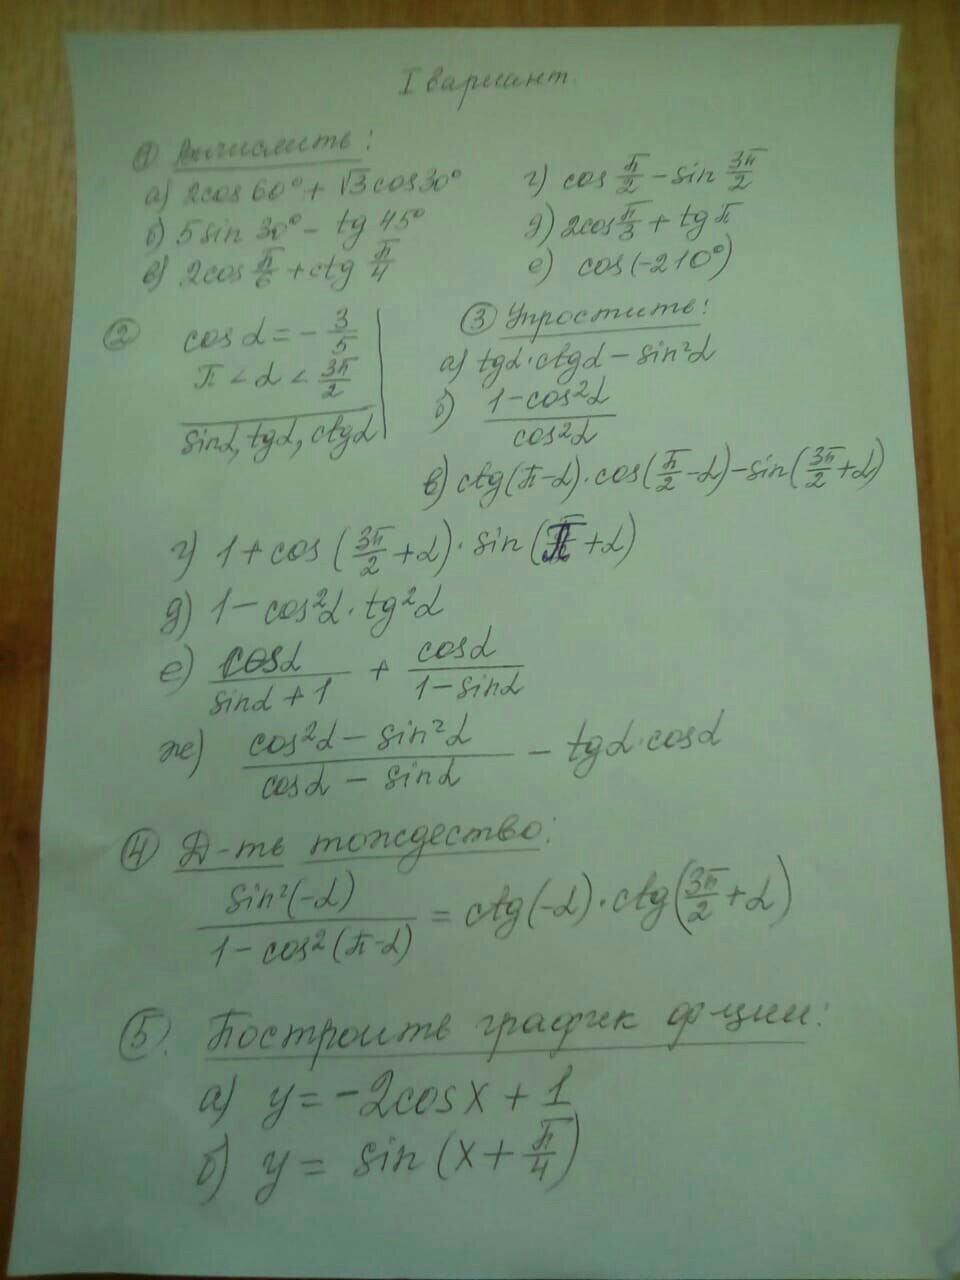 I вариант.
① Вычислить:
а) 2cos 60° + √3 cos 30°
б) 5 sin 30° - tg 45°
в) 2cos π/6 + ctg π/4
г) cos π/2 - sin 3π/2
д) 2cos π/3 + tg π
е) cos(-210°)
② cos α = - 3/5
π < α < 3π/2
sinα, tgα, ctgα
③ Упростить:
а) tgα · ctgα - sin²α
б) (1-cos²α)/(cos²α)
в) ctg(π-α) · cos(π/2 -α) - sin(3π/2 + α)
г) 1 + cos(3π/2 + α) · sin(π + α)
д) 1 - cos²α · tg²α
е) cosα/(sinα + 1) + cosα/(1 - sinα)
ж) (cos²α - sin²α)/(cosα - sinα) - tgα · cosα
④ Д-ть тождество:
sin²(-α)/(1 - cos²(π-α)) = ctg(-α) · ctg(3π/2 + α)
⑤. Построить график ф-ции:
а) y = -2cos x + 1
б) y = sin (x + π/4)